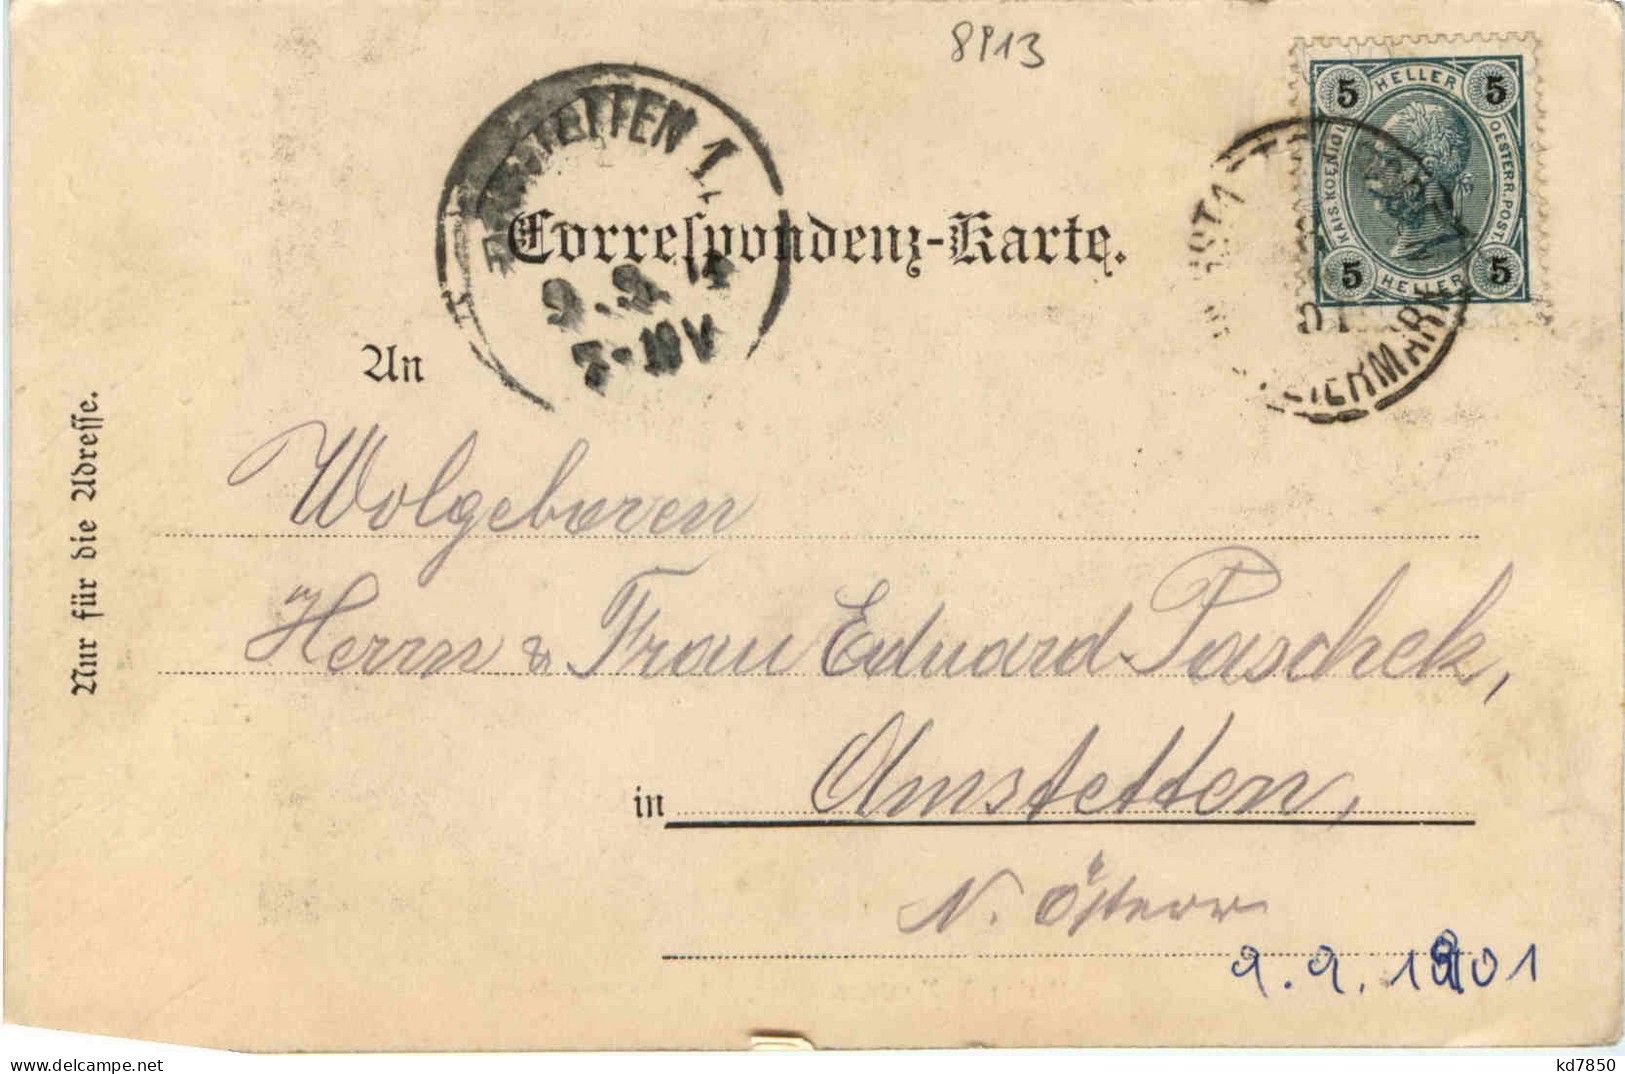 8913
5 HELLER 5
KAIS. KOENIGL.
OESTERR. POST.
5 HELLER 5
STEIERMARK
AMSTETTEN 1.
9. 9.
7-10V
Correspondenz-Karte.
An
Wolgeboren
Herrn & Frau Eduard Paschek,
in Amstetten,
N. Österr
9. 9. 1901
Nur für die Adresse.
kd7850